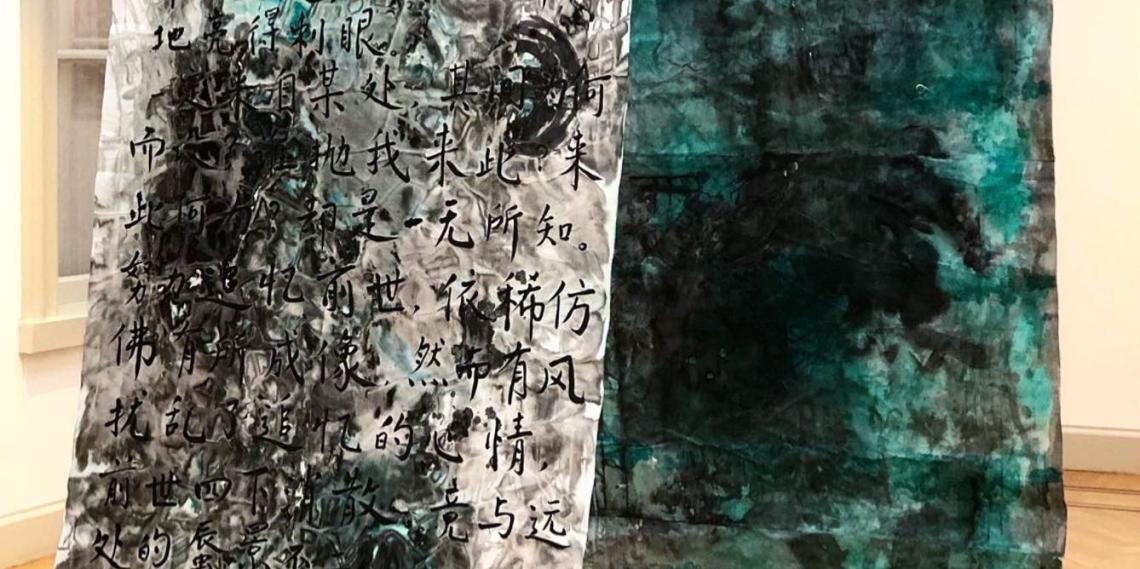 地亮得刺眼。
来自某处，其何为何
而抛我来此？来
此何方？却是一无所知。
努力追忆前世，依稀仿
佛有所成像，然而有风
扰乱了追忆的心情，
前世四下流散，竟与远
处的晨景